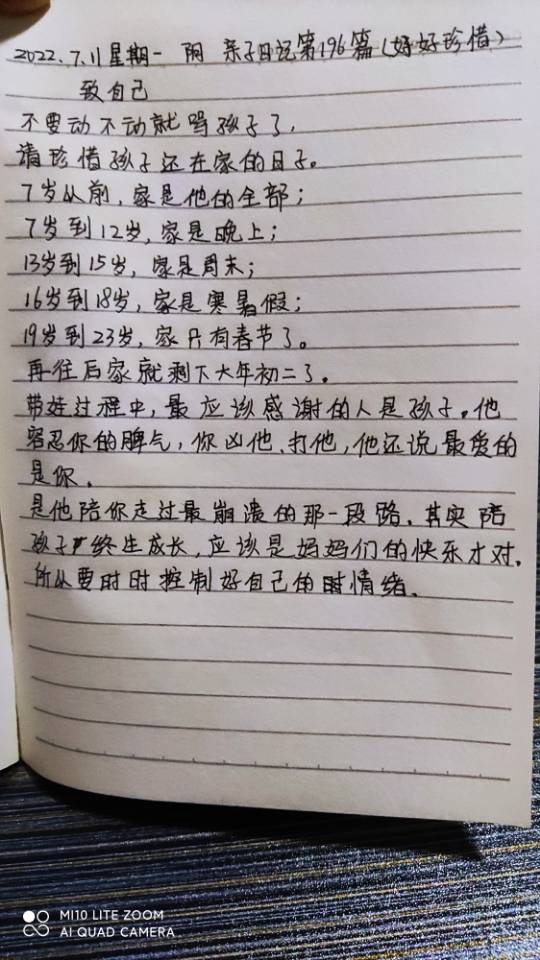 2022.7.11星期一 阴 亲子日记第196篇(好好珍惜)
致自己
不要动不动就骂孩子了,
请珍惜孩子还在家的日子。
7岁以前,家是他的全部;
7岁到12岁,家是晚上;
13岁到15岁,家是周末;
16岁到18岁,家是寒暑假;
19岁到23岁,家只有春节了。
再往后家就剩下大年初二了。
带娃过程中,最应该感谢的人是孩子。他
容忍你的脾气,你凶他、打他,他还说最爱的
是你.
是他陪你走过最崩溃的那一段路.其实陪
孩子终生成长,应该是妈妈们的快乐才对.
所以要时时控制好自己的情绪.
MI10 LITE ZOOM
AI QUAD CAMERA